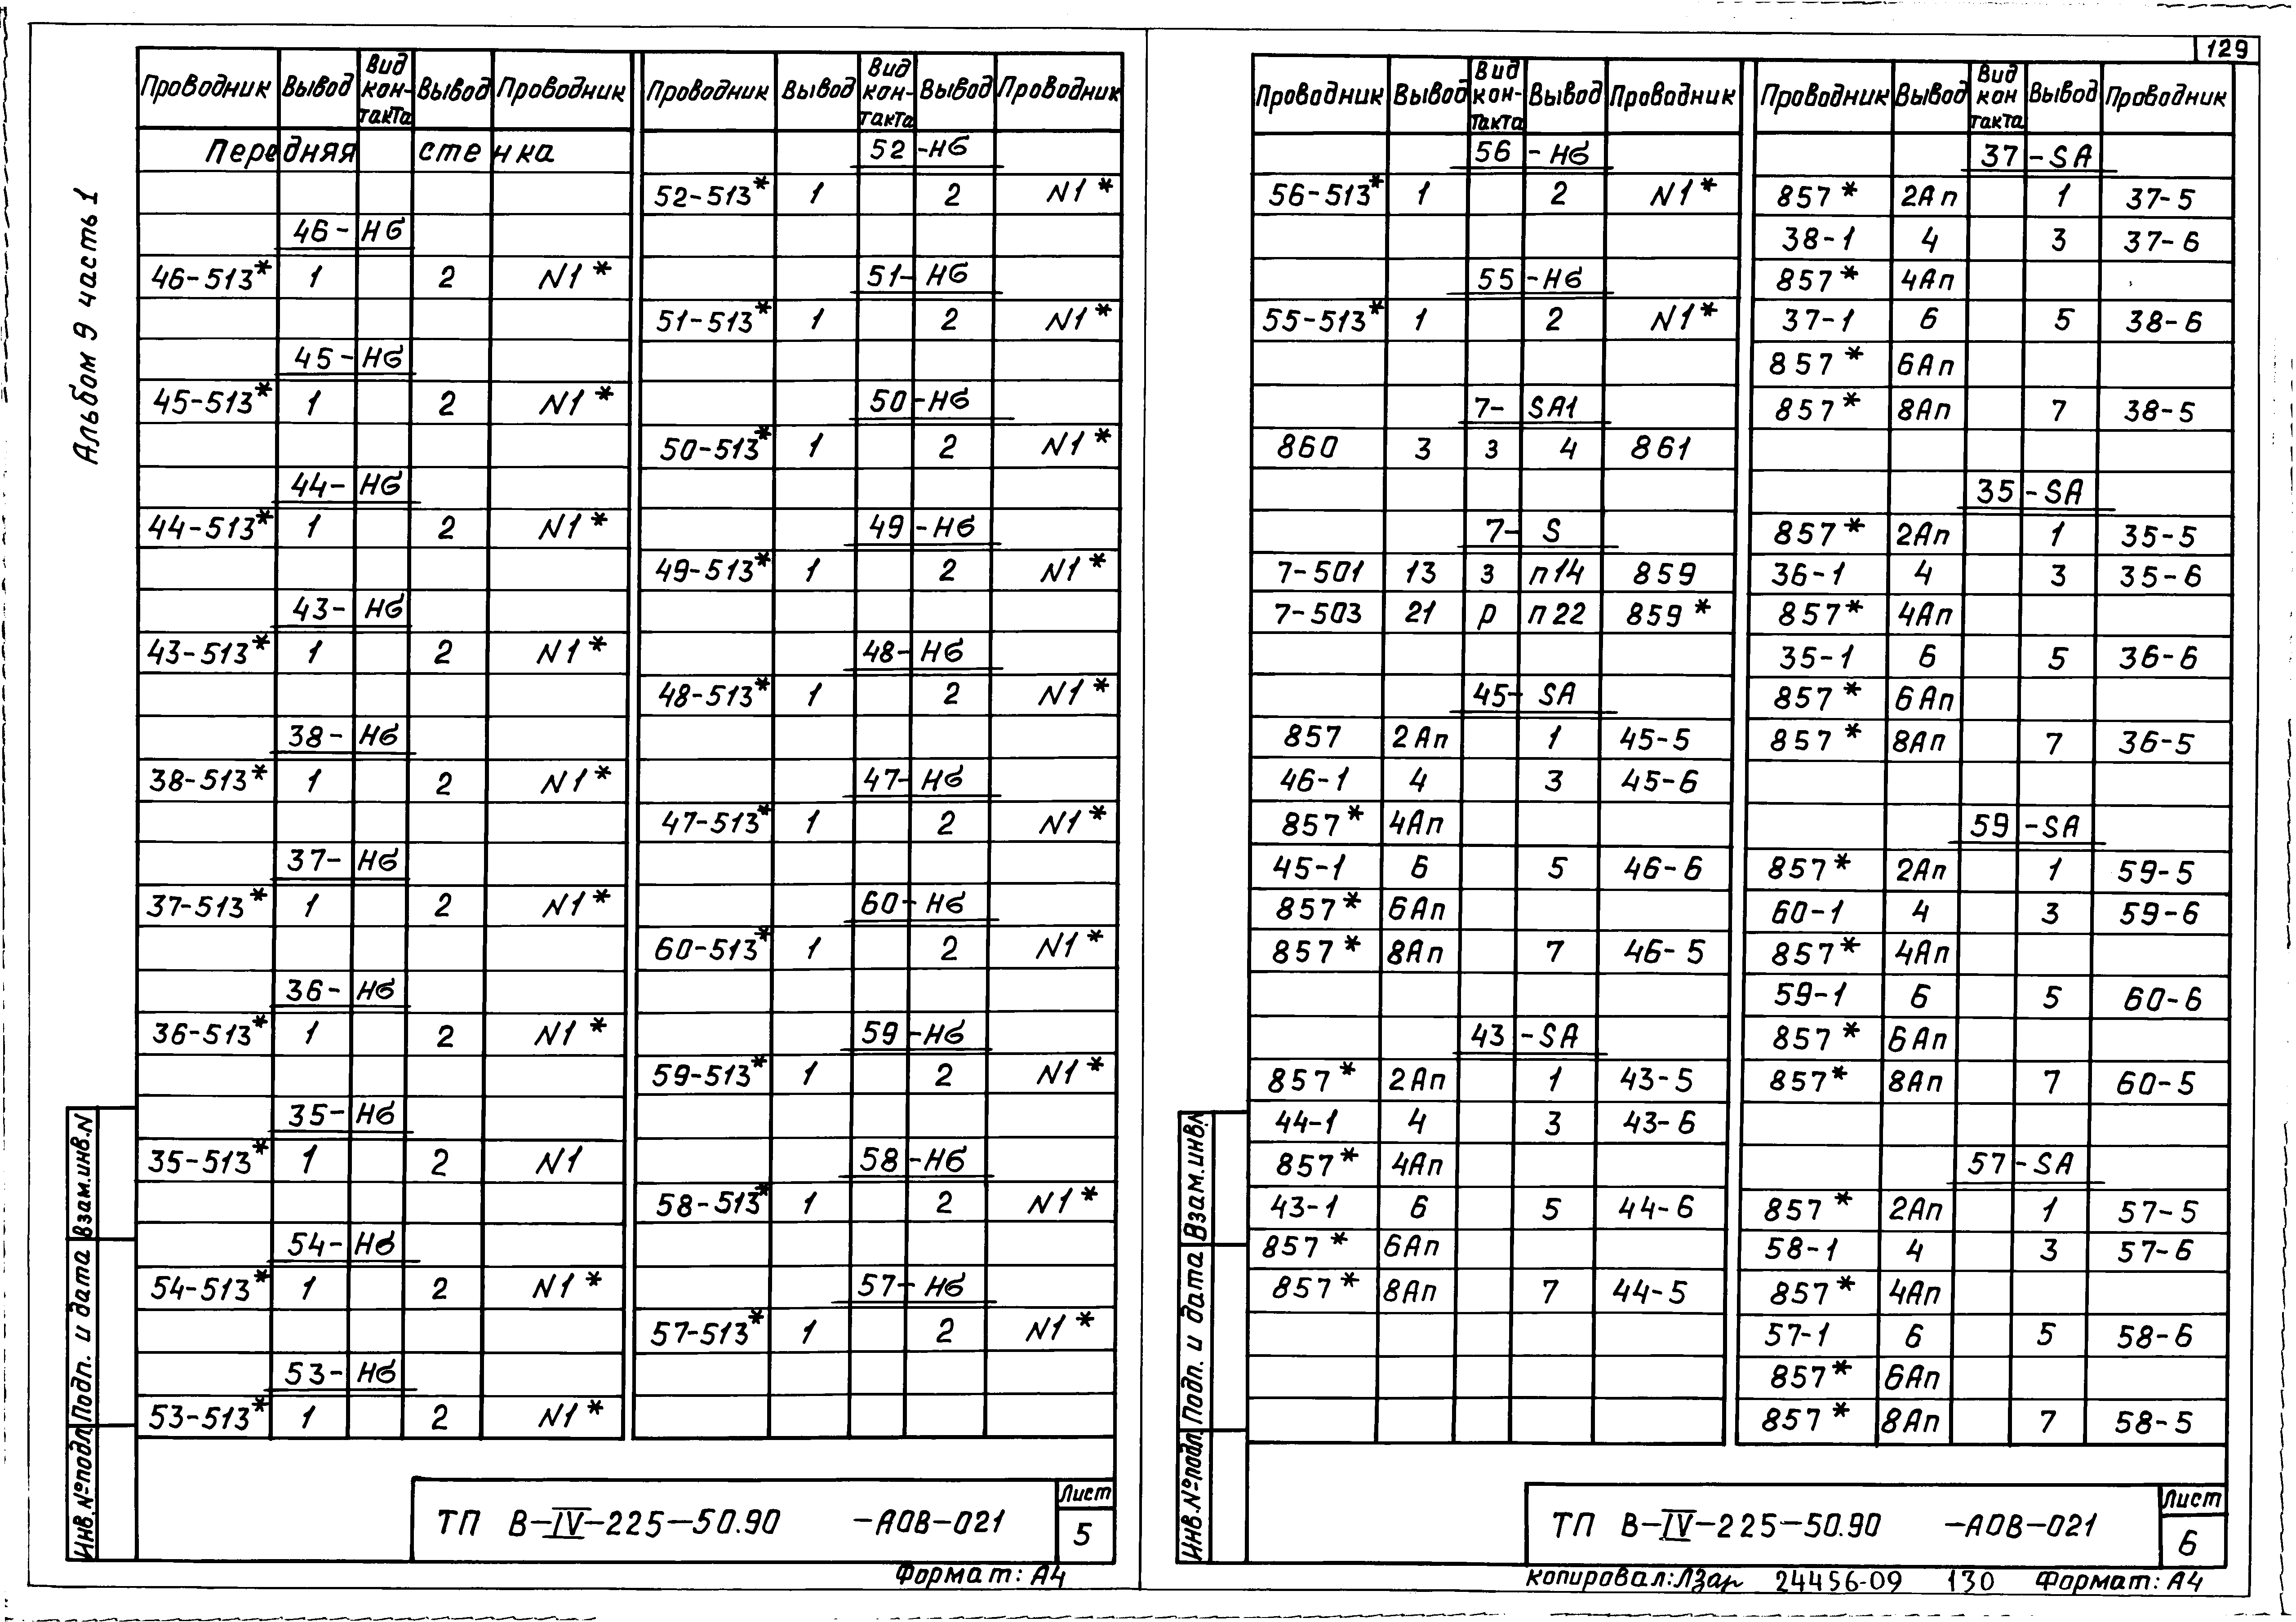 Альбом 9 часть 1
Проводник Вывод Вид кон-такта Вывод Проводник
Передняя стенка
46-HG
46-513* 1 2 N1*
45-HG
45-513* 1 2 N1*
44-HG
44-513* 1 2 N1*
43-HG
43-513* 1 2 N1*
38-HG
38-513* 1 2 N1*
37-HG
37-513* 1 2 N1*
36-HG
36-513* 1 2 N1*
35-HG
35-513* 1 2 N1
54-HG
54-513* 1 2 N1*
53-HG
53-513* 1 2 N1*
Проводник Вывод Вид кон-такта Вывод Проводник
52-HG
52-513* 1 2 N1*
51-HG
51-513* 1 2 N1*
50-HG
50-513* 1 2 N1*
49-HG
49-513* 1 2 N1*
48-HG
48-513* 1 2 N1*
47-HG
47-513* 1 2 N1*
60-HG
60-513* 1 2 N1*
59-HG
59-513* 1 2 N1*
58-HG
58-513* 1 2 N1*
57-HG
57-513* 1 2 N1*
Взам.инв.N
Подп. и дата
Инв.№подл
ТП В-IV-225-50.90 -АОВ-021
Лист
5
Формат: А4
129
Проводник Вывод Вид кон-такта Вывод Проводник
56-HG
56-513* 1 2 N1*
55-HG
55-513* 1 2 N1*
7-SA1
860 3 з 4 861
7-S
7-501 13 з п14 859
7-503 21 р п22 859*
45-SA
857 2Ап 1 45-5
46-1 4 3 45-6
857* 4Ап
45-1 6 5 46-6
857* 6Ап
857* 8Ап 7 46-5
43-SA
857* 2Ап 1 43-5
44-1 4 3 43-6
857* 4Ап
43-1 6 5 44-6
857* 6Ап
857* 8Ап 7 44-5
Проводник Вывод Вид кон такта Вывод Проводник
37-SA
857* 2Ап 1 37-5
38-1 4 3 37-6
857* 4Ап
37-1 6 5 38-6
857* 6Ап
857* 8Ап 7 38-5
35-SA
857* 2Ап 1 35-5
36-1 4 3 35-6
857* 4Ап
35-1 6 5 36-6
857* 6Ап
857* 8Ап 7 36-5
59-SA
857* 2Ап 1 59-5
60-1 4 3 59-6
857* 4Ап
59-1 6 5 60-6
857* 6Ап
857* 8Ап 7 60-5
57-SA
857* 2Ап 1 57-5
58-1 4 3 57-6
857* 4Ап
57-1 6 5 58-6
857* 6Ап
857* 8Ап 7 58-5
Взам.инв.N
Подп. и дата
Инв.№подл
ТП В-IV-225-50.90 -АОВ-021
Лист
6
копировал: Лзар 24456-09 130 Формат: А4